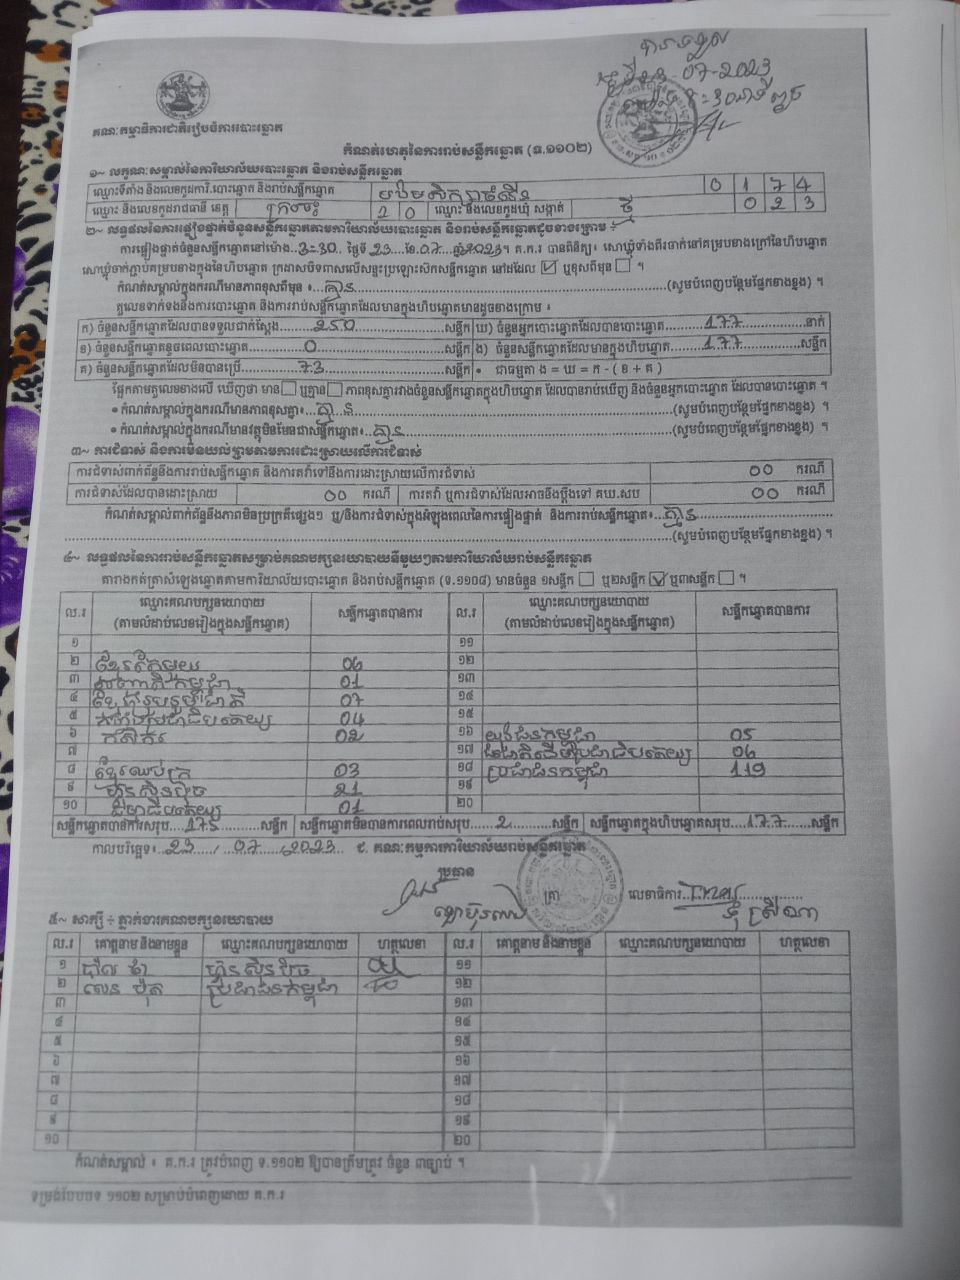 បានទទួល
07-2023
គណៈកម្មាធិការជាតិរៀបចំការបោះឆ្នោត
កំណត់ហេតុនៃការរាប់សន្លឹកឆ្នោត (ទ.១១០២)
១~ លក្ខណៈសម្គាល់នៃការិយាល័យបោះឆ្នោត និងរាប់សន្លឹកឆ្នោត
ឈ្មោះទីតាំង និងលេខកូដការិ.បោះឆ្នោត និងរាប់សន្លឹកឆ្នោត 0 1 7 4
ឈ្មោះ និងលេខកូដរាជធានី ខេត្ត ក្រចេះ 2 0 ឈ្មោះ និងលេខកូដឃុំ សង្កាត់ ថ្មី 0 2 3
២~ លទ្ធផលនៃការផ្ទៀងផ្ទាត់ចំនួនសន្លឹកឆ្នោតតាមការិយាល័យបោះឆ្នោត និងរាប់សន្លឹកឆ្នោតដូចខាងក្រោម ÷
ការផ្ទៀងផ្ទាត់ចំនួនសន្លឹកឆ្នោតនៅម៉ោង..3=30.. ថ្ងៃទី 23 ..ខែ.07.. ឆ្នាំ2023។ គ.ក.រ បានពិនិត្យ៖ សោឃ្លុំទាំងពីរចាក់នៅគម្របខាងក្រៅនៃហិបឆ្នោត
សោឃ្លុំចាក់ភ្ជាប់គម្របខាងក្នុងនៃហិបឆ្នោត ក្រដាសបិទពាសលើសន្ទះប្រឡោះស៊កសន្លឹកឆ្នោត នៅដដែល ☑ ឬខុសពីមុន ☐ ។
កំណត់សម្គាល់ក្នុងករណីមានភាពខុសពីមុន ៖ គ្មាន (សូមបំពេញបន្ថែមផ្នែកខាងខ្នង) ។
តួលេខទាក់ទងនឹងការបោះឆ្នោត និងការរាប់សន្លឹកឆ្នោតដែលមានក្នុងហិបឆ្នោតមានដូចខាងក្រោម ៖
ក) ចំនួនសន្លឹកឆ្នោតដែលបានទទួលជាក់ស្តែង 250 សន្លឹក ឃ) ចំនួនអ្នកបោះឆ្នោតដែលបានបោះឆ្នោត 177 នាក់
ខ) ចំនួនសន្លឹកឆ្នោតខូចពេលបោះឆ្នោត 0 សន្លឹក ង) ចំនួនសន្លឹកឆ្នោតដែលមានក្នុងហិបឆ្នោត 177 សន្លឹក
គ) ចំនួនសន្លឹកឆ្នោតដែលមិនបានប្រើ 73 សន្លឹក • ជាធម្មតា ង = ឃ = ក - ( ខ + គ )
ផ្អែកតាមតួលេខខាងលើ ឃើញថា មាន ☐ ឬគ្មាន ☐ ភាពខុសគ្នារវាងចំនួនសន្លឹកឆ្នោតក្នុងហិបឆ្នោត ដែលបានរាប់ឃើញ និងចំនួនអ្នកបោះឆ្នោត ដែលបានបោះឆ្នោត ។
• កំណត់សម្គាល់ក្នុងករណីមានភាពខុសគ្នា៖ គ្មាន (សូមបំពេញបន្ថែមផ្នែកខាងខ្នង) ។
• កំណត់សម្គាល់ក្នុងករណីមានវត្ថុមិនមែនជាសន្លឹកឆ្នោត៖ គ្មាន (សូមបំពេញបន្ថែមផ្នែកខាងខ្នង) ។
៣~ ការជំទាស់ និងការមិនយល់ព្រមតាមការដោះស្រាយលើការជំទាស់
ការជំទាស់ពាក់ព័ន្ធនឹងការរាប់សន្លឹកឆ្នោត និងការតវ៉ាទៅនឹងការដោះស្រាយលើការជំទាស់ 00 ករណី
ការជំទាស់ដែលបានដោះស្រាយ 00 ករណី ការតវ៉ា ឬការជំទាស់ដែលអាចនឹងប្តឹងទៅ គឃ.សប 00 ករណី
កំណត់សម្គាល់ពាក់ព័ន្ធនឹងភាពមិនប្រក្រតីផ្សេងៗ ឬ/និងការជំទាស់ក្នុងអំឡុងពេលនៃការផ្ទៀងផ្ទាត់ និងការរាប់សន្លឹកឆ្នោត៖ គ្មាន
(សូមបំពេញបន្ថែមផ្នែកខាងខ្នង) ។
៤~ លទ្ធផលនៃការរាប់សន្លឹកឆ្នោតសម្រាប់គណបក្សនយោបាយនីមួយៗតាមការិយាល័យរាប់សន្លឹកឆ្នោត
តារាងកត់ត្រាសំឡេងឆ្នោតតាមការិយាល័យបោះឆ្នោត និងរាប់សន្លឹកឆ្នោត (ទ.១១០៨) មានចំនួន ១សន្លឹក ☐ ឬ២សន្លឹក ☑ ឬ៣សន្លឹក ☐ ។
ល.រ ឈ្មោះគណបក្សនយោបាយ (តាមលំដាប់លេខរៀងក្នុងសន្លឹកឆ្នោត) សន្លឹកឆ្នោតបានការ ល.រ ឈ្មោះគណបក្សនយោបាយ (តាមលំដាប់លេខរៀងក្នុងសន្លឹកឆ្នោត) សន្លឹកឆ្នោតបានការ
១ ១១
២ ខ្មែរតែមួយ 06 ១២
៣ សញ្ជាតិកម្ពុជា 01 ១៣
៤ ខ្មែររួបរួមជាតិ 07 ១៤
៥ ប្រជាធិបតេយ្យ 04 ១៥
៦ កសិករ 02 ១៦ យុវជនកម្ពុជា 05
៧ ១៧ ប្រជាធិបតេយ្យ 06
៨ ខ្មែរឈប់ក្រ 03 ១៨ ប្រជាជនកម្ពុជា 119
៩ ហ្វ៊ុនស៊ិនប៉ិច 21 ១៩
១០ ធម្មាធិបតេយ្យ 01 ២០
សន្លឹកឆ្នោតបានការសរុប 175 សន្លឹក សន្លឹកឆ្នោតមិនបានការពេលរាប់សរុប 2 សន្លឹក សន្លឹកឆ្នោតក្នុងហិបឆ្នោតសរុប 177 សន្លឹក
កាលបរិច្ឆេទ៖ 23 / 07 / 2023 គណៈកម្មការការិយាល័យរាប់សន្លឹកឆ្នោត
ប្រធាន
ត្រា លេខាធិការ
៥~ សាក្សី ÷ ភ្នាក់ងារគណបក្សនយោបាយ
ល.រ គោត្តនាម និងនាមខ្លួន ឈ្មោះគណបក្សនយោបាយ ហត្ថលេខា ល.រ គោត្តនាម និងនាមខ្លួន ឈ្មោះគណបក្សនយោបាយ ហត្ថលេខា
១ ហ្វ៊ុនស៊ិនប៉ិច ១១
២ ប្រជាជនកម្ពុជា ១២
៣ ១៣
៤ ១៤
៥ ១៥
៦ ១៦
៧ ១៧
៨ ១៨
៩ ១៩
១០ ២០
កំណត់សម្គាល់ ៖ គ.ក.រ ត្រូវបំពេញ ទ.១១០២ ឱ្យបានត្រឹមត្រូវ ចំនួន ៣ច្បាប់ ។
ទម្រង់បែបបទ ១១០២ សម្រាប់បំពេញដោយ គ.ក.រ